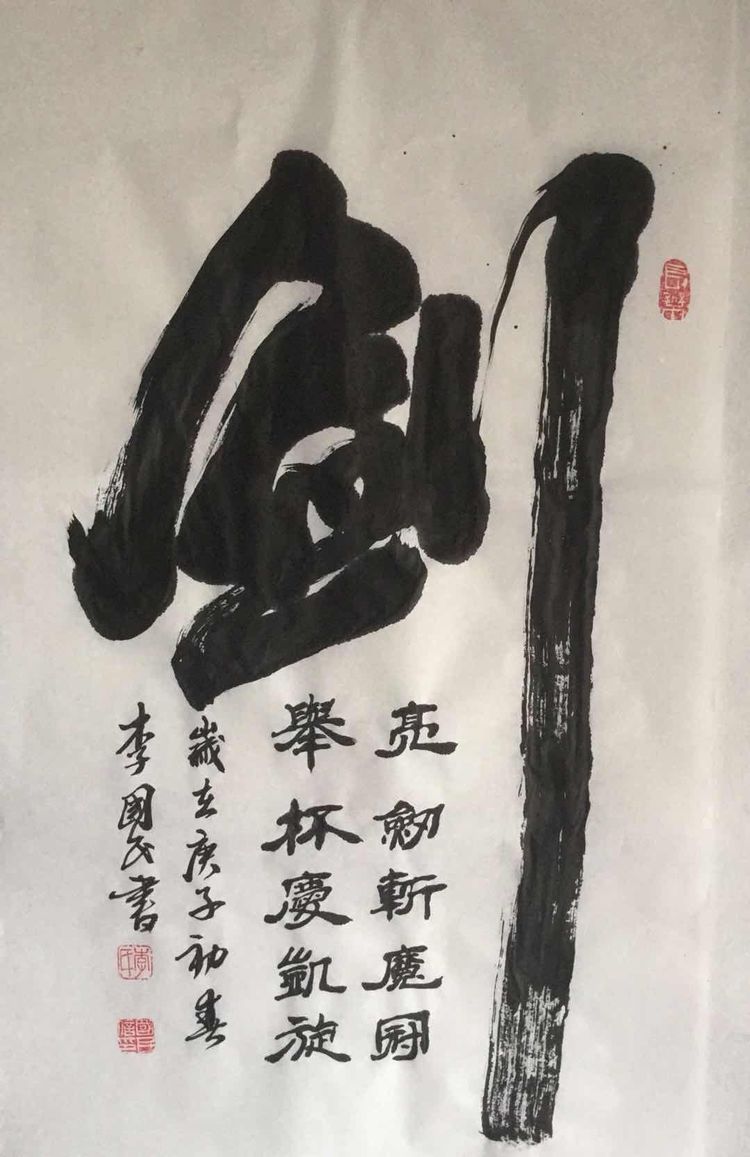 劍
亮劒斬魔冠
舉杯慶凱旋
歲在庚子初春
李國民書